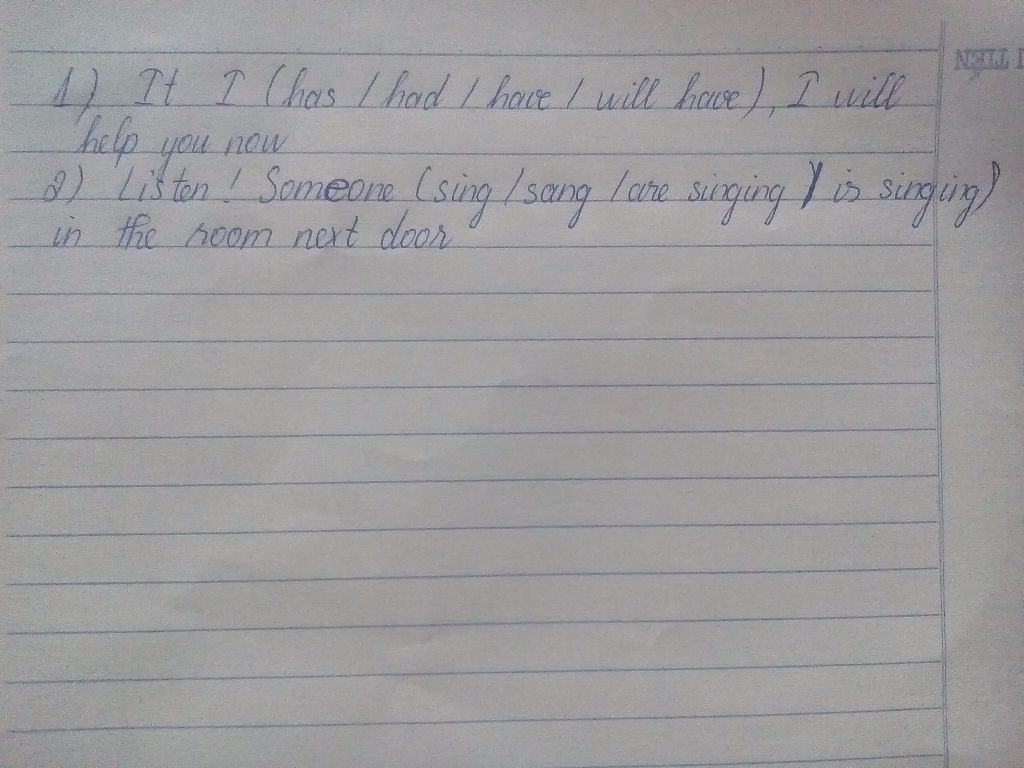 1) It I (has / had / have / will have), I will
help you now
2) Listen! Someone (sing / sang / are singing / is singing)
in the room next door